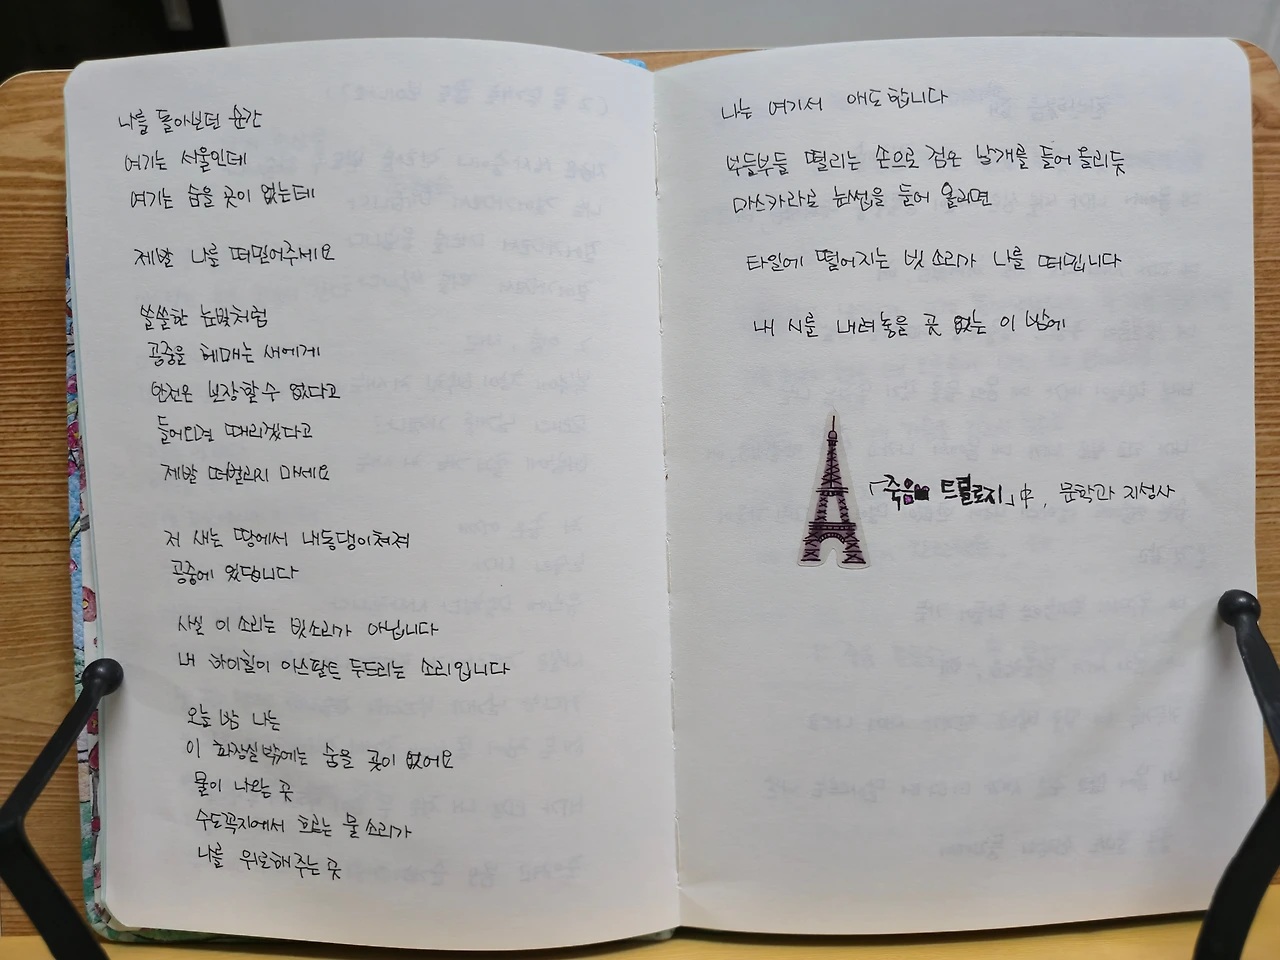 나를 돌아보던 순간
여기는 서울인데
여기는 숨을 곳이 없는데
제발 나를 떠밀어주세요
쓸쓸한 눈빛처럼
공중을 헤매는 새에게
안전은 보장할 수 없다고
들어오면 때리겠다고
제발 떠벌리지 마세요
저 새는 땅에서 내동댕이쳐져
공중에 있답니다
사실 이 소리는 빗소리가 아닙니다
내 하이힐이 아스팔트 두드리는 소리입니다
오늘 밤 나는
이 화장실밖에는 숨을 곳이 없어요
물이 나오는 곳
수도꼭지에서 흐르는 물소리가
나를 위로해주는 곳
나는 여기서 애도합니다
부들부들 떨리는 손으로 검은 날개를 들어 올리듯
마스카라로 눈썹을 들어 올리면
타일에 떨어지는 빗소리가 나를 떠밉니다
내 시를 내려놓을 곳 없는 이 밤에
「죽음 트릴로지」中, 문학과 지성사